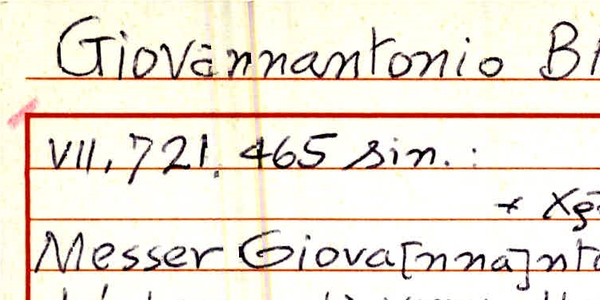 Giovannantonio
VII, 721. 465 sin. :
Messer Giova[nna]nto